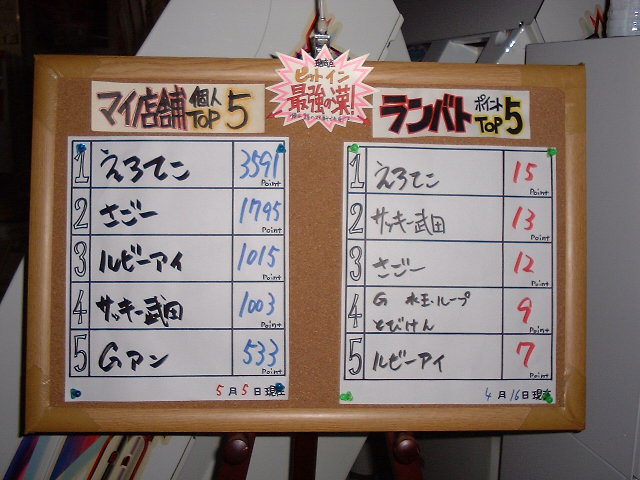 現時点
ピットイン
最強の漢!
マイ店舗 個人 TOP 5
1 えろてこ 3591 Point
2 さごー 1795 Point
3 ルビーアイ 1015 Point
4 サッキー武田 1003 Point
5 Gアン 533 Point
5月5日現在
ランバト ポイント TOP 5
1 えろてこ 15 Point
2 サッキー武田 13 Point
3 さごー 12 Point
4 G 水玉・ループ 9 Point
とびけん
5 ルビーアイ 7 Point
4月16日現在